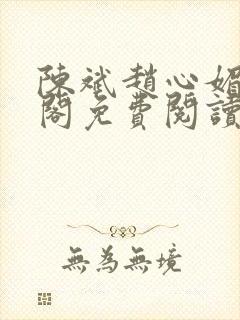 陳斌趙心媚
閣免費閱讀
無為無境